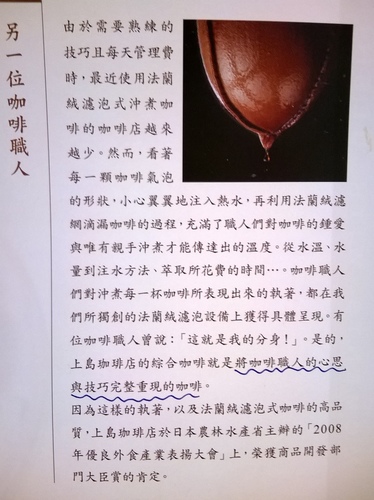 另一位咖啡職人
由於需要熟練的
技巧且每天管理費
時，最近使用法蘭
絨濾泡式沖煮咖
啡的咖啡店越來
越少。然而，看著
每一顆咖啡氣泡
的形狀，小心翼翼地注入熱水，再利用法蘭絨濾
網滴漏咖啡的過程，充滿了職人們對咖啡的鍾愛
與唯有親手沖煮才能傳達出的溫度。從水溫、水
量到注水方法、萃取所花費的時間…。咖啡職人
們對沖煮每一杯咖啡所表現出來的執著，都在我
們所獨創的法蘭絨濾泡設備上獲得具體呈現。有
位咖啡職人曾說：「這就是我的分身！」。是的，
上島珈琲店的綜合咖啡就是將咖啡職人的心思
與技巧完整重現的咖啡。
因為這樣的執著，以及法蘭絨濾泡式咖啡的高品
質，上島珈琲店於日本農林水產省主辦的「2008
年優良外食產業表揚大會」上，榮獲商品開發部
門大臣賞的肯定。